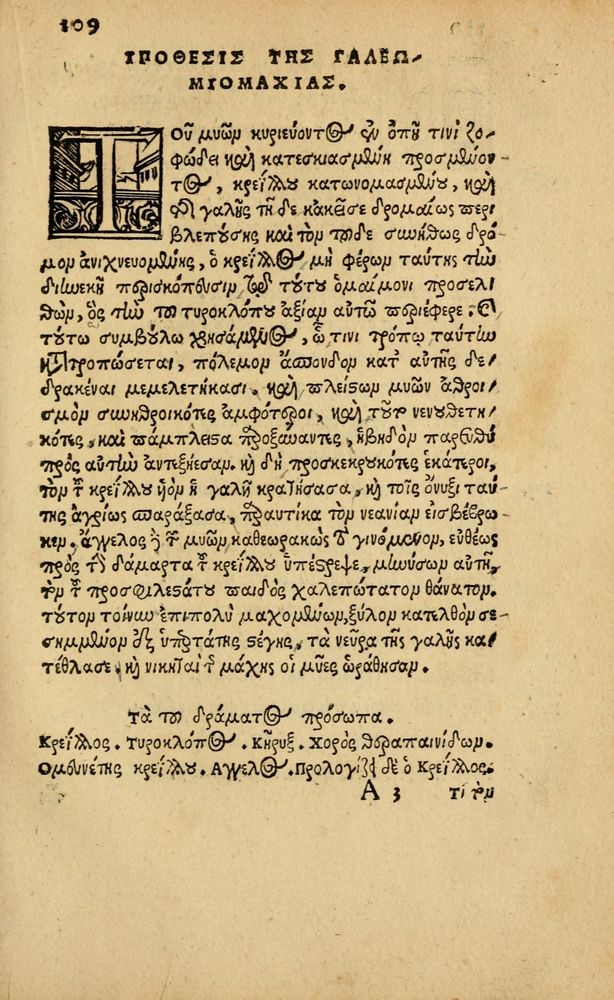 109
ΠΡΟΘΕΣΙΣ ΤΗΣ ΓΑΛΕΩ-
ΜΥΟΜΑΧΙΑΣ.
Τοῦ μυῶν κυριεύοντος ἐν ὀπῇ τινὶ ζο-
φώδει καὶ κατεσκιασμένῃ προσμένον-
τος, κρείλλου κατωνομασμένου, καὶ
γαλῆς τῇδε κἀκεῖσε δρομαίως περι
βλεπούσης καὶ τὸν τοῦδε συνήθως δρό-
μον ἀνιχνευομένης, ὁ κρεΐλλος μὴ φέρων ταύτης τὴν
διηνεκῆ προσελ
θὼν, ὃς τὴν τοῦ τυροκλόπου ἀξίαν αὐτῷ περιέφερε.
τούτῳ συμβούλῳ χρησάμενος, ᾧ τινι τρόπῳ ταύτην
κατατροπώσεται, πόλεμον ἄσπονδον κατ' αὐτῆς δε-
δρακέναι μεμελετήκασι. καὶ πλεῖστον μυῶν ἀθροι-
σμὸν συνηθροικότες ἀμφότεροι, καὶ νενουθετη-
κότες, καὶ πάμπλειστα προξενοῦντες, ἡβηδὸν παρευθὺ
πρὸς αὐτὴν ἀντεξῄεσαν. καὶ δὴ προσκεκρουκότες ἑκάτεροι,
τὸν τοῦ κρεΐλλου υἱὸν ἡ γαλῆ κρατήσασα, καὶ τοῖς ὄνυξι ταύ-
της ἀγρίως σπαράξασα, παραυτίκα τὸν νεανίαν εἰσβέβρω-
κεν. ἄγγελος δὲ τῶν μυῶν καθεωρακὼς τὸ γινόμενον, εὐθέως
πρὸς τὴν δάμαρτα τοῦ κρεΐλλου ὑπέστρεψε, μηνύσων αὐτῇ,
τὸν τοῦ προσφιλεστάτου παιδὸς χαλεπώτατον θάνατον.
τούτων τοίνυν ἐπιπολὺ μαχομένων, ξύλον κατελθὸν σε-
σημμένον ἐξ ὑπερτάτης στέγης, τὰ νεῦρα τῆς γαλῆς κα-
τέθλασε. καὶ νικηταὶ τῆς μάχης οἱ μῦες ὡράθησαν.
Τὰ τοῦ δράματος πρόσωπα.
Κρεΐλλος. Τυροκλόπος. Κήρυξ. Χορὸς θεραπαινίδων.
Ὁμευνέτης κρεΐλλου. Ἄγγελος. Προλογίζει δὲ ὁ Κρεΐλλος.
A 3 τί τὸν